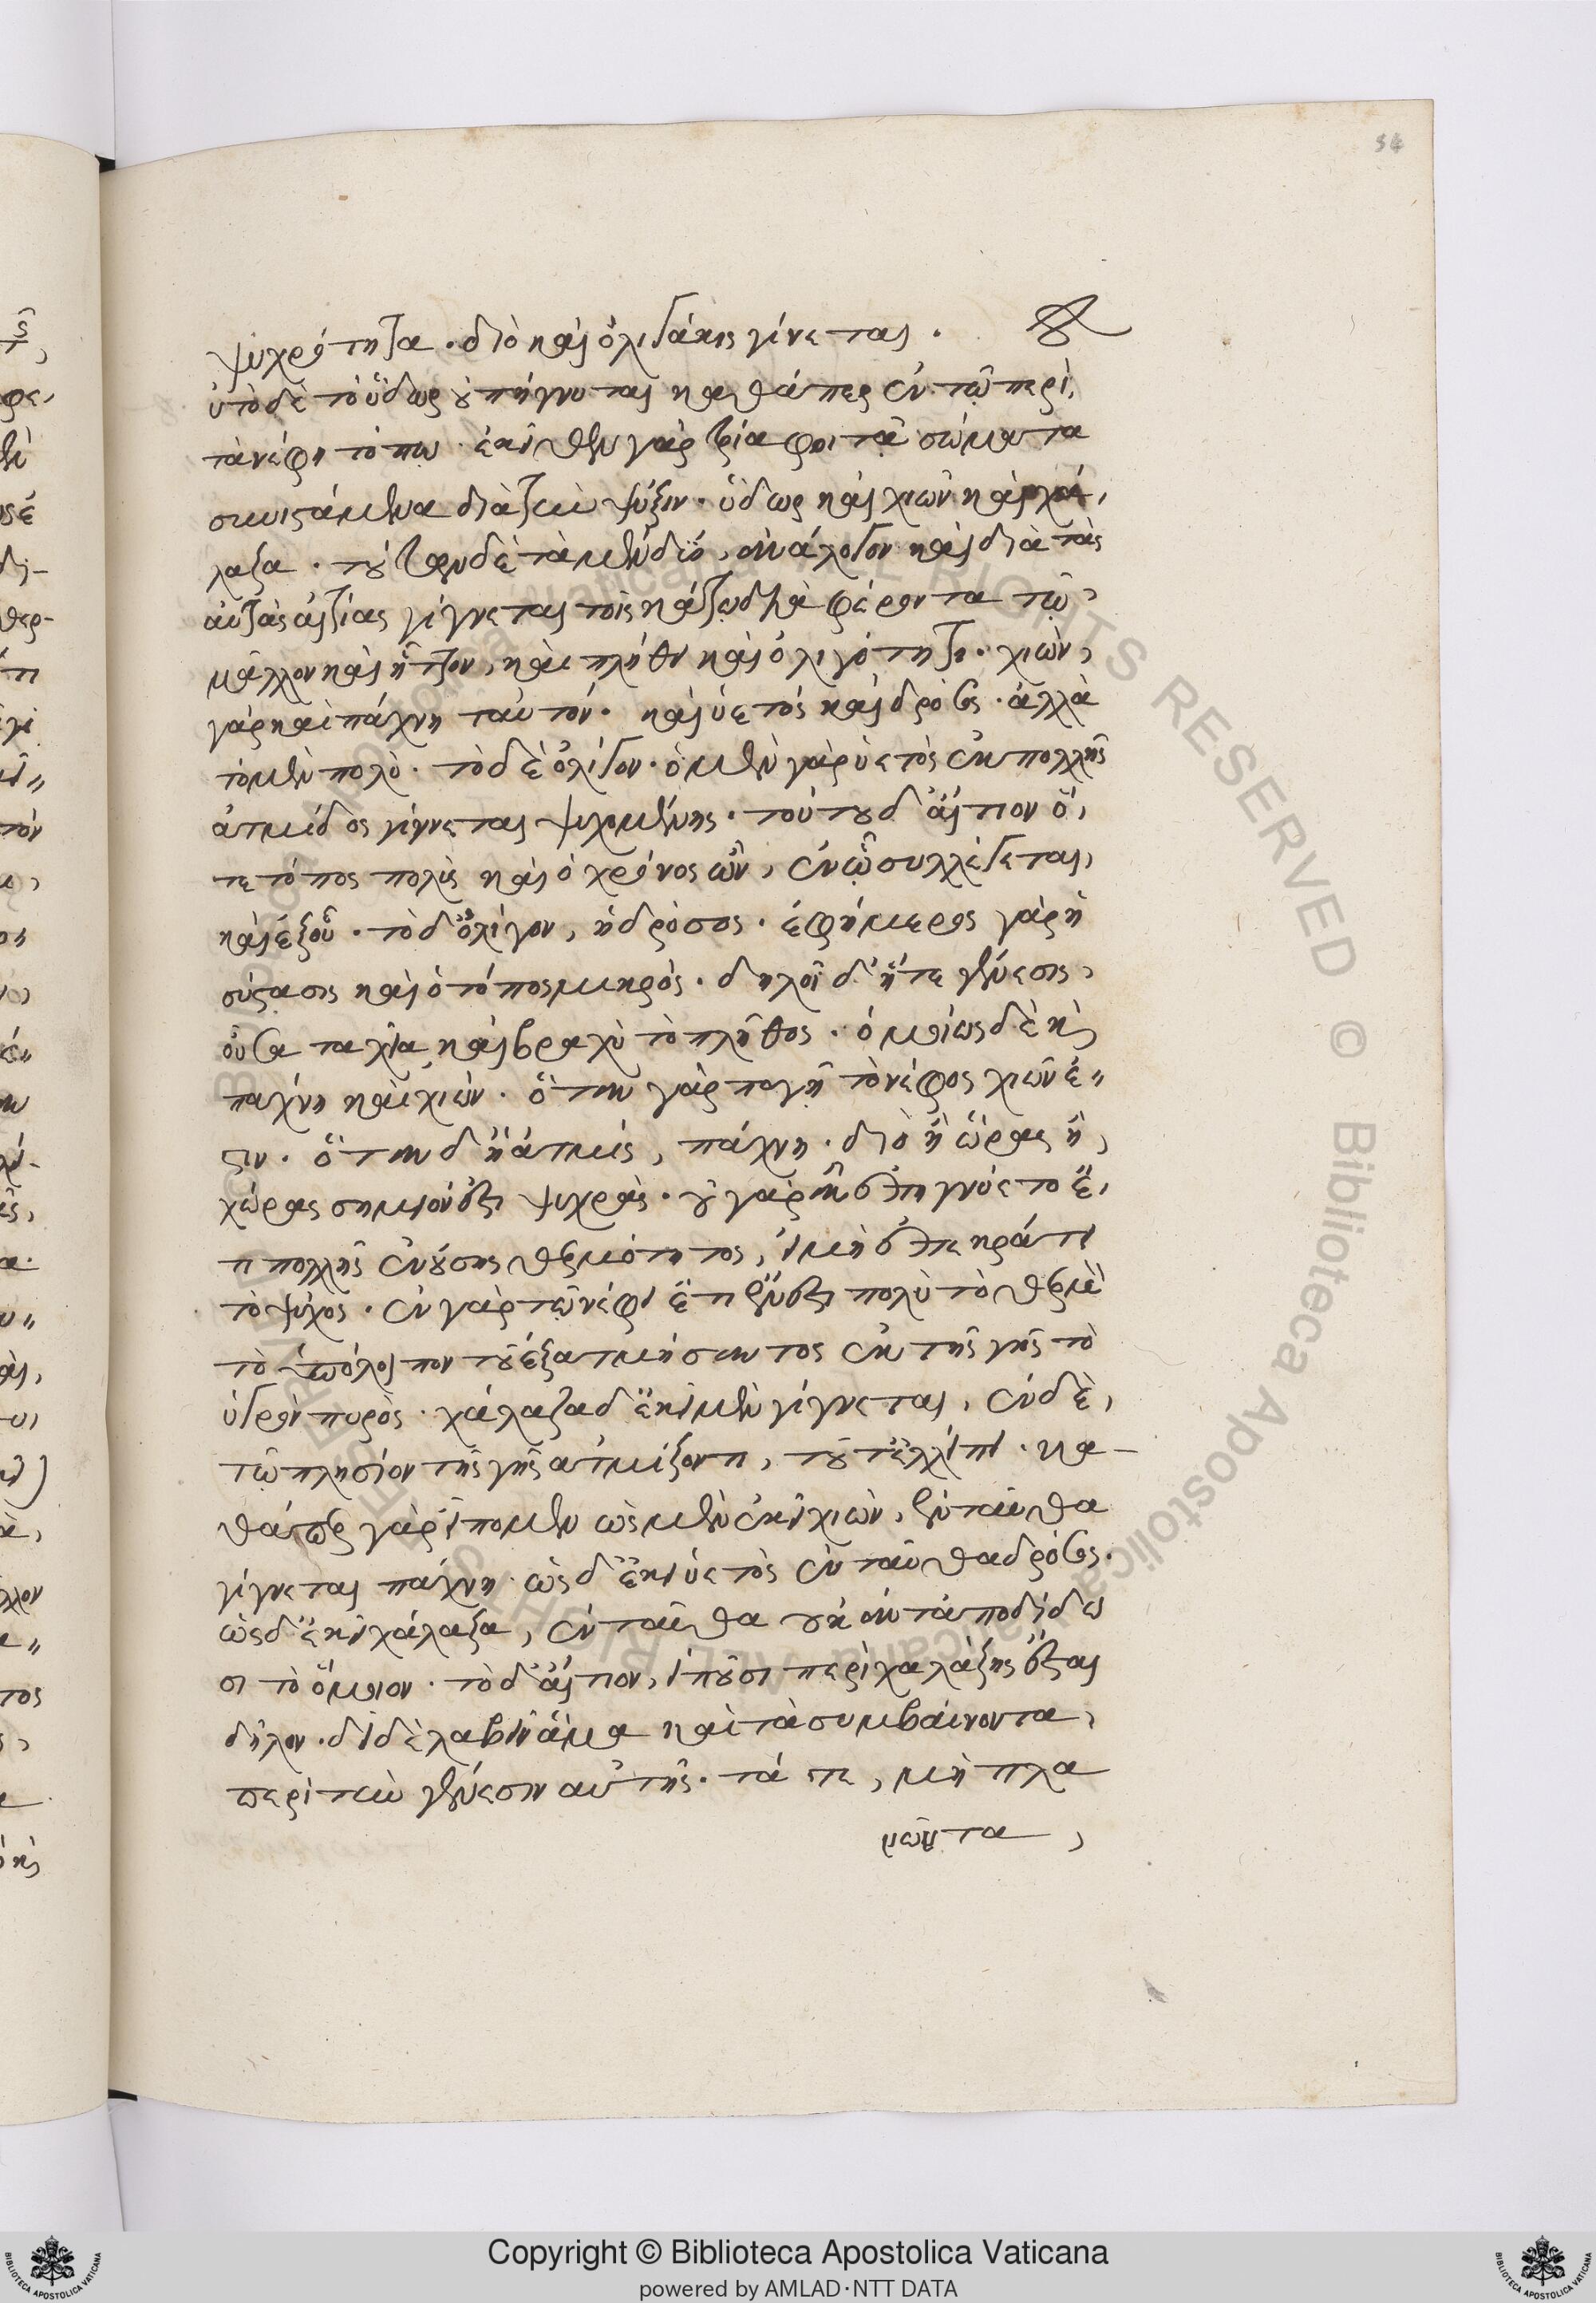 34
ψυχρότητα· διὸ καὶ ὀλιγάκις γίνεται·
αὐτὸ δὲ τὸ ὕδωρ οὐ πήγνυται καθάπερ ἐν τῷ περὶ
τὰ νέφη τόπῳ· ἐκεῖθεν γὰρ τρία φοιτᾷ σώματα
συνιστάμενα διὰ τὴν ψύξιν· ὕδωρ καὶ χιὼν καὶ χά,
λαζα· τούτων δὲ τὰ μὲν δύο, ἀνάλογον καὶ διὰ τὰς
αὐτὰς αἰτίας γίγνεται τοῖς κάτω διαφέροντα τῷ
μᾶλλον καὶ ἧττον, καὶ πλήθει καὶ ὀλιγότητι· χιὼν,
γὰρ καὶ πάχνη ταὐτόν· καὶ ὑετός καὶ δρόσος· ἀλλὰ
τὸ μὲν πολὺ· τὸ δὲ ὀλίγον· ὁ μὲν γὰρ ὑετὸς ἐκ πολλῆς
ἀτμίδος γίγνεται ψυχομένης· τούτου δ' αἴτιον ὅ,
τε τόπος πολὺς καὶ ὁ χρόνος ὢν, ἐν ᾧ συλλέγεται,
καὶ ἐξ οὗ· τὸ δ' ὀλίγον, ἡ δρόσος· ἐφήμερος γὰρ ἡ
σύστασις καὶ ὁ τόπος μικρὸς· δηλοῖ δ' ἥτε γένεσις,
οὖσα ταχεῖα καὶ βραχὺ τὸ πλῆθος· ὁμοίως δὲ καὶ
πάχνη καὶ χιών· ὅταν γὰρ παγῇ τὸ νέφος χιών ἐ"
στιν· ὅταν δ' ἡ ἀτμὶς, πάχνη· διὸ ἢ ὥρας ἢ,
χώρας σημεῖόν ἐστι ψυχρᾶς· οὐ γὰρ ἂν ἐπήγνυετο ἔ,
τι πολλῆς ἐνούσης θερμότητος, εἰ μὴ ἐπεκράτει
τὸ ψύχος· ἐν γὰρ τῷ νέφει ἔτι ἔνεστι πολὺ τὸ θερμὸν
τὸ ὑπόλοιπον τοῦ ἐξατμήσαντος ἐκ τῆς γῆς τὸ
ὑγρὸν πυρὸς· χάλαζα δ' ἐκεῖ μὲν γίγνεται, ἐν δὲ,
τῷ πλησίον τῆς γῆς ἀτμίζοντι, τοῦτ' ἐλλείπει· κα-
θάπερ γὰρ εἴπομεν ὡς μὲν ἐκεῖ χιὼν, ἐνταῦθα
γίγνεται πάχνη· ὡς δ' ἐκεῖ ὑετὸς ἐνταῦθα δρόσος·
ὡς δ' ἐκεῖ χάλαζα, ἐνταῦθα οὐκ ἀνταποδίδω
σι τὸ ὅμοιον· τὸ δ' αἴτιον, εἰποῦσι περὶ χαλάζης ἔσται
δῆλον· δεῖ δὲ λαβεῖν ἅμα καὶ τὰ συμβαίνοντα,
περὶ τὴν γένεσιν αὐτῆς· τά τε, μὴ πλα
νῶντα,